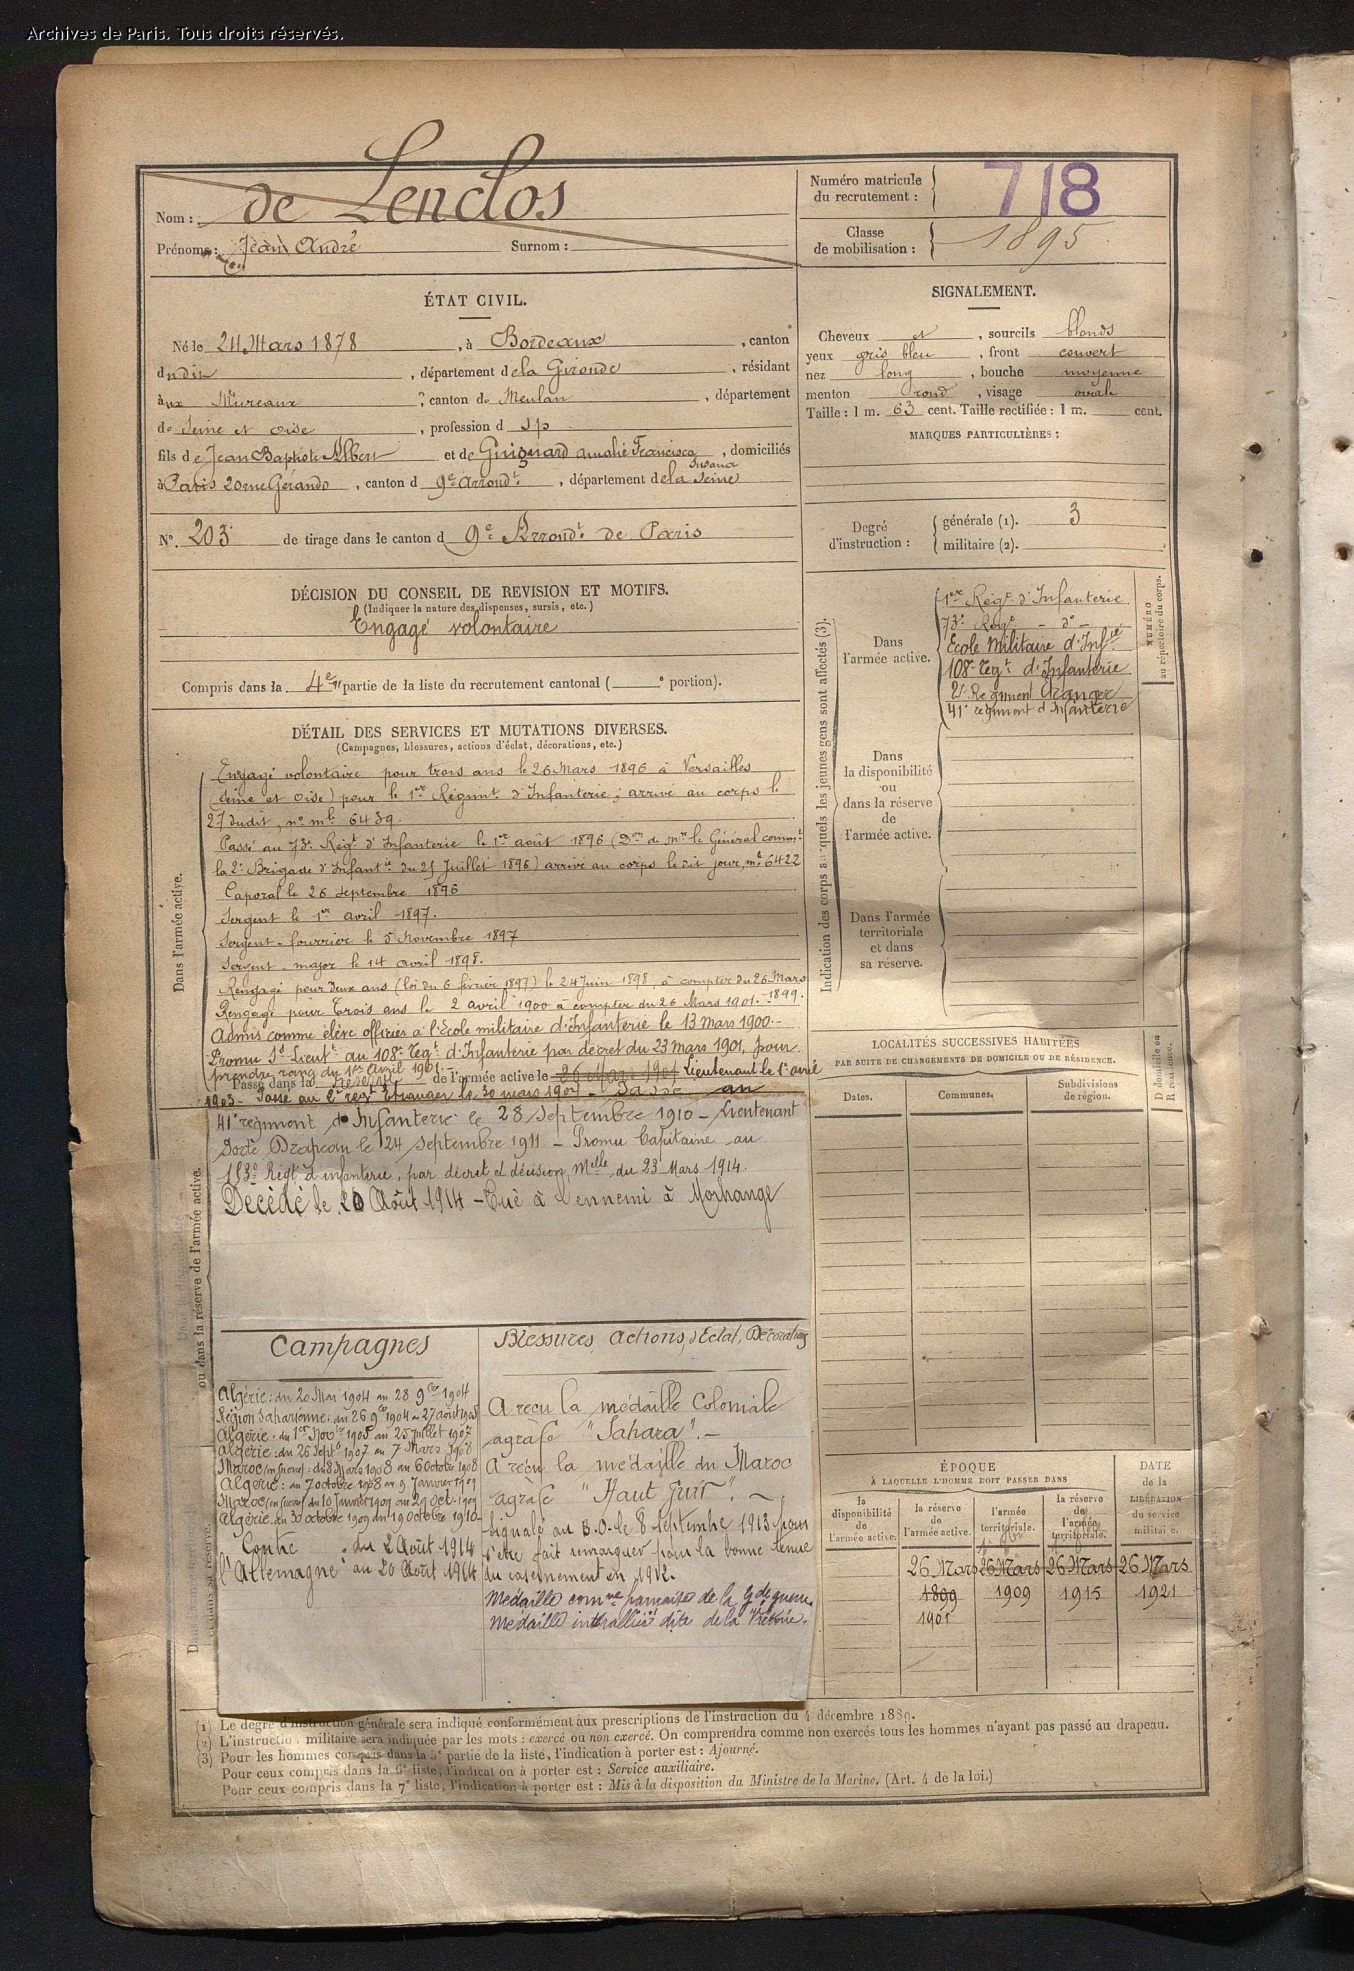 Archives de Paris. Tous droits réservés.
Nom : de Lenclos
Prénoms : Jean André Surnom :
Numéro matricule
du recrutement : 718
Classe
de mobilisation : 1895
ÉTAT CIVIL.
Né le 24 Mars 1878, à Bordeaux, canton
dudit, département de la Gironde, résidant
aux Mureaux, canton de Meulan, département
de Seine et Oise, profession d s/p
fils de Jean Baptiste Albert et de Guignard Amalie Francisca, domiciliés
Susana
à Paris 20 rue Gérando, canton d 9e Arrondt, département de la Seine
No. 203 de tirage dans le canton d 9e Arrondt de Paris
SIGNALEMENT.
Cheveux et, sourcils blonds
yeux gris bleu, front couvert
nez long, bouche moyenne
menton rond, visage ovale
Taille : 1 m. 63 cent. Taille rectifiée : 1 m. cent.
MARQUES PARTICULIÈRES :
Degré
d'instruction :
générale (1). 3
militaire (2).
DÉCISION DU CONSEIL DE REVISION ET MOTIFS.
(Indiquer la nature des dispenses, sursis, etc.)
Engagé volontaire
Compris dans la 4e partie de la liste du recrutement cantonal ( e portion).
DÉTAIL DES SERVICES ET MUTATIONS DIVERSES.
(Campagnes, blessures, actions d'éclat, décorations, etc.)
Dans l'armée active.
Engagé volontaire pour trois ans le 26 Mars 1896 à Versailles
(Seine et Oise) pour le 1er Régimt d'Infanterie ; arrivé au corps le
27 dudit, no mle 6439.
Passé au 73e Régt d'Infanterie le 1er août 1896 (Don de Mr le Général commt
la 2e Brigade d'Infantie du 25 Juillet 1896) arrivé au corps le dit jour, me 6422
Caporal le 26 Septembre 1896
Sergent le 1er avril 1897.
Sergent-fourrier le 5 Novembre 1897
Sergent-major le 14 avril 1898.
Rengagé pour deux ans (loi du 6 février 1897) le 24 Juin 1898, à compter du 26 Mars
1899.
Rengagé pour trois ans le 2 avril 1900 à compter du 26 Mars 1901.
Admis comme élève officier à l'Ecole militaire d'Infanterie le 13 mars 1900.-
Promu Ss Lieutt au 108e Regt d'Infanterie par décret du 23 mars 1901, pour
prendre rang du 1er Avril 1901.
Passé dans la réserve de l'armée active le 26 Mars 1901 Lieutenant le 1er avril
1903- Passé au 2e regt Etranger le 30 mars 1904 - Passé au
41e régiment d'Infanterie le 28 Septembre 1910 - Lieutenant
Porte Drapeau le 24 Septembre 1911 - Promu Capitaine au
153e Régt d'infanterie, par décret et décision Melle du 23 Mars 1914.
Décédé le 20 Août 1914 - Tué à l'ennemi à Morhange
ou dans la réserve de l'armée active.
Campagnes
Algérie : du 20 Mai 1904 au 28 9bre 1904
Région Saharienne : du 26 9bre 1904 au 27 août 1905
Algérie : du 1er Novbre 1905 au 25 Juillet 1907
Algérie : du 26 Septe 1907 au 7 Mars 1908
Maroc (en guerre) : du 8 Mars 1908 au 6 Octobre 1908
Algérie : du 7 octobre 1908 au 9 Janvier 1909
Maroc (en guerre) du 10 Janvier 1909 au 29 oct. 1909
Algérie du 30 octobre 1909 au 19 octobre 1910
Contre du 2 Août 1914
l'Allemagne au 20 Août 1914
Blessures, Actions d'Eclat, Décorations
A reçu la médaille Coloniale
agrafe "Sahara".-
A reçu la médaille du Maroc
agrafe "Haut Guir".
Signalé au B.O. le 8 septembre 1913 pour
s'être fait remarquer pour la bonne tenue
du casernement en 1912.
Médaille comve française de la Gde guerre
Médaille interalliée dite de la Victoire.
Indication des corps auxquels les jeunes gens sont affectés (3).
NUMÉRO
au répertoire du corps.
Dans
l'armée active.
1er Régt d'Infanterie
73e Régt - do -
Ecole Militaire d'Infie
108e Regt d'Infanterie
2e Régiment Etranger
41e régiment d'Infanterie
Dans
la disponibilité
ou
dans la réserve
de
l'armée active.
Dans l'armée
territoriale
et dans
sa réserve.
LOCALITÉS SUCCESSIVES HABITÉES
PAR SUITE DE CHANGEMENTS DE DOMICILE OU DE RÉSIDENCE.
Dates.
Communes.
Subdivisions
de région.
D domicile ou
R résidence.
ÉPOQUE
À LAQUELLE L'HOMME DOIT PASSER DANS
DATE
de la
LIBÉRATION
du service
militaire.
la
disponibilité
de
l'armée active.
la réserve
de
l'armée active.
l'armée
territoriale.
la réserve
de
l'armée
territoriale.
26 Mars 26 Mars 26 Mars 26 Mars
1899 1909 1915 1921
1901
(1) Le degré d'instruction générale sera indiqué conformément aux prescriptions de l'instruction du 4 décembre 1889.
(2) L'instruction militaire sera indiquée par les mots : exercé ou non exercé. On comprendra comme non exercés tous les hommes n'ayant pas passé au drapeau.
(3) Pour les hommes compris dans la 5e partie de la liste, l'indication à porter est : Ajourné.
Pour ceux compris dans la 6e liste, l'indication à porter est : Service auxiliaire.
Pour ceux compris dans la 7e liste, l'indication à porter est : Mis à la disposition du Ministre de la Marine. (Art. 4 de la loi.)